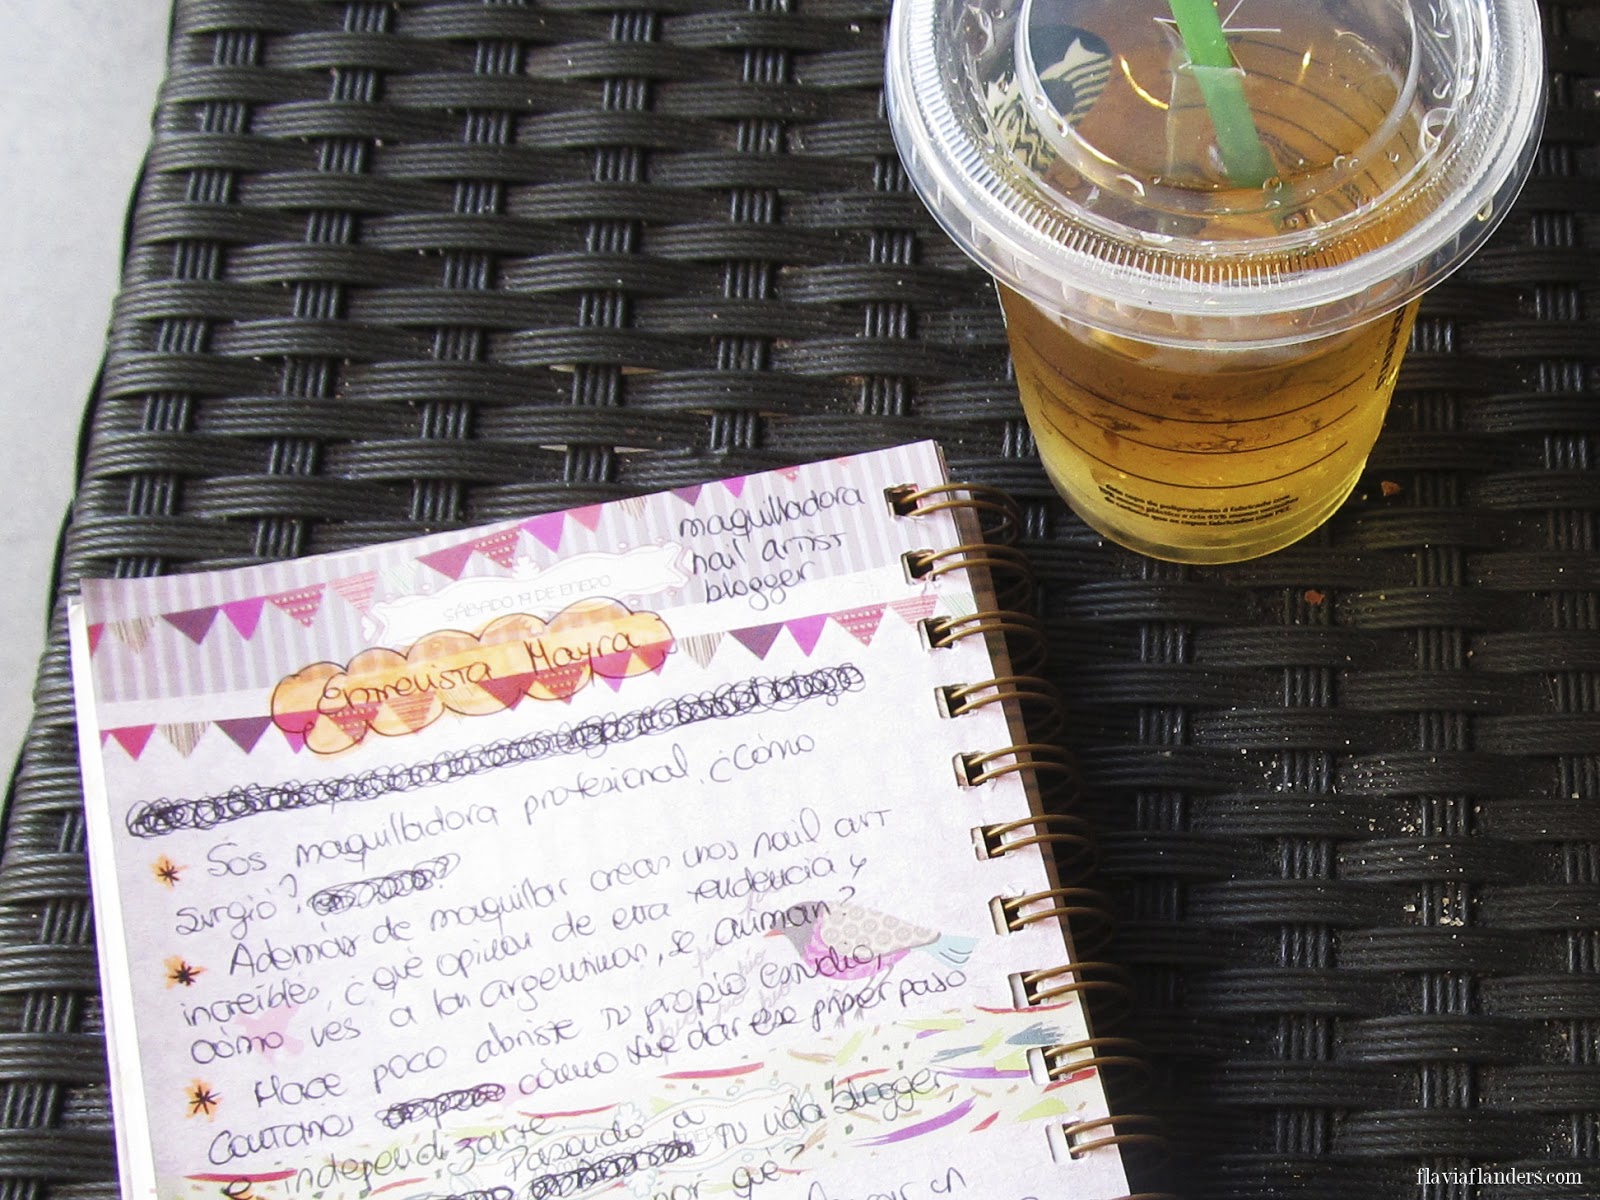 maquilladora
nail artist
blogger
SÁBADO 19 DE ENERO
Entrevista Mayra
Sos maquilladora profesional, ¿Cómo
surgió?
Además de maquillar creas unos nail art
increíbles, ¿qué opinan de esta tendencia y
cómo ves a las argentinas, se animan?
Hace poco abriste tu propio estudio,
Contanos cómo fue dar ese primer paso
e independizarte.
Pasando a tu vida blogger,
por qué?
un
Este copo de polipropileno é fabricado com
flaviaflanders.com